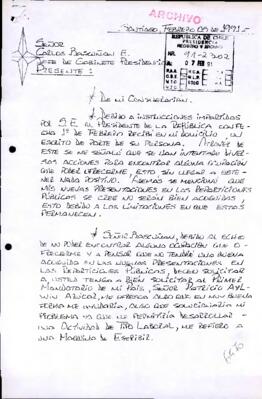 ARCHIVO
SANTIAGO, FEBRERO 05 DE 1991.-
REPUBLICA DE CHILE
PRESIDENCIA
REGISTRO Y ARCHIVO
NR. 91-2302
A: 07 FEB 91
SEÑOR
CARLOS BASCUÑAN E.
JEFE DE GABINETE PRESIDENCIAL
PRESENTE:
DE MI CONSIDERACION.
DEBIDO A INSTRUCCIONES IMPARTIDAS
POR S.E. EL PRESIDENTE DE LA REPÚBLICA CON FE-
CHA 1º DE FEBRERO RECIBI EN MI DOMICILIO UN
ESCRITO DE PARTE DE SU PERSONA. A TRAVES DE
ESTE SE ME SEÑALÓ QUE SE HAN INTENTADO DIVER-
SAS ACCIONES PARA ENCONTRAR ALGUNA
QUE PODER OFRECERME, ESTO SIN LLEGAR A OBTE-
NER NADA POSITIVO. ADEMAS SE MENCIONÓ QUE
MIS NUEVAS PRESENTACIONES EN LAS REPARTICIONES
PÚBLICAS SE CREE NO SERÁN BIEN ACOGIDAS,
ESTO DEBIDO A LAS LIMITACIONES EN QUE ESTAS
PERMANECEN.
SEÑOR BASCUÑAN, DEBIDO AL ECHO
DE NO PODER ENCONTRAR ALGUNA OCUPACION QUE O-
FRECERME Y A PENSAR QUE NO TENDRÉ UNA BUENA
ACOGIDA EN LAS NUEVAS PRESENTACIONES EN
LAS REPARTICIONES PÚBLICAS, DECEO SOLICITAR
A USTED TENGA A BIEN SOLICITAR AL PRIMER
MANDATARIO DE MI PAIS, SEÑOR PATRICIO AYL-
WIN AZOCAR, ME OFRESCA ALGO QUE EN MUY BUENA
FORMA ME AYUDARIA, ALGO QUE SOLUCIONARIA MI
PROBLEMA YA QUE ME PERMITIRIA DESARROLLAR
UNA ACTIVIDAD DE TIPO LABORAL, ME REFIERO A
UNA MAQUINA DE ESCRIBIR.